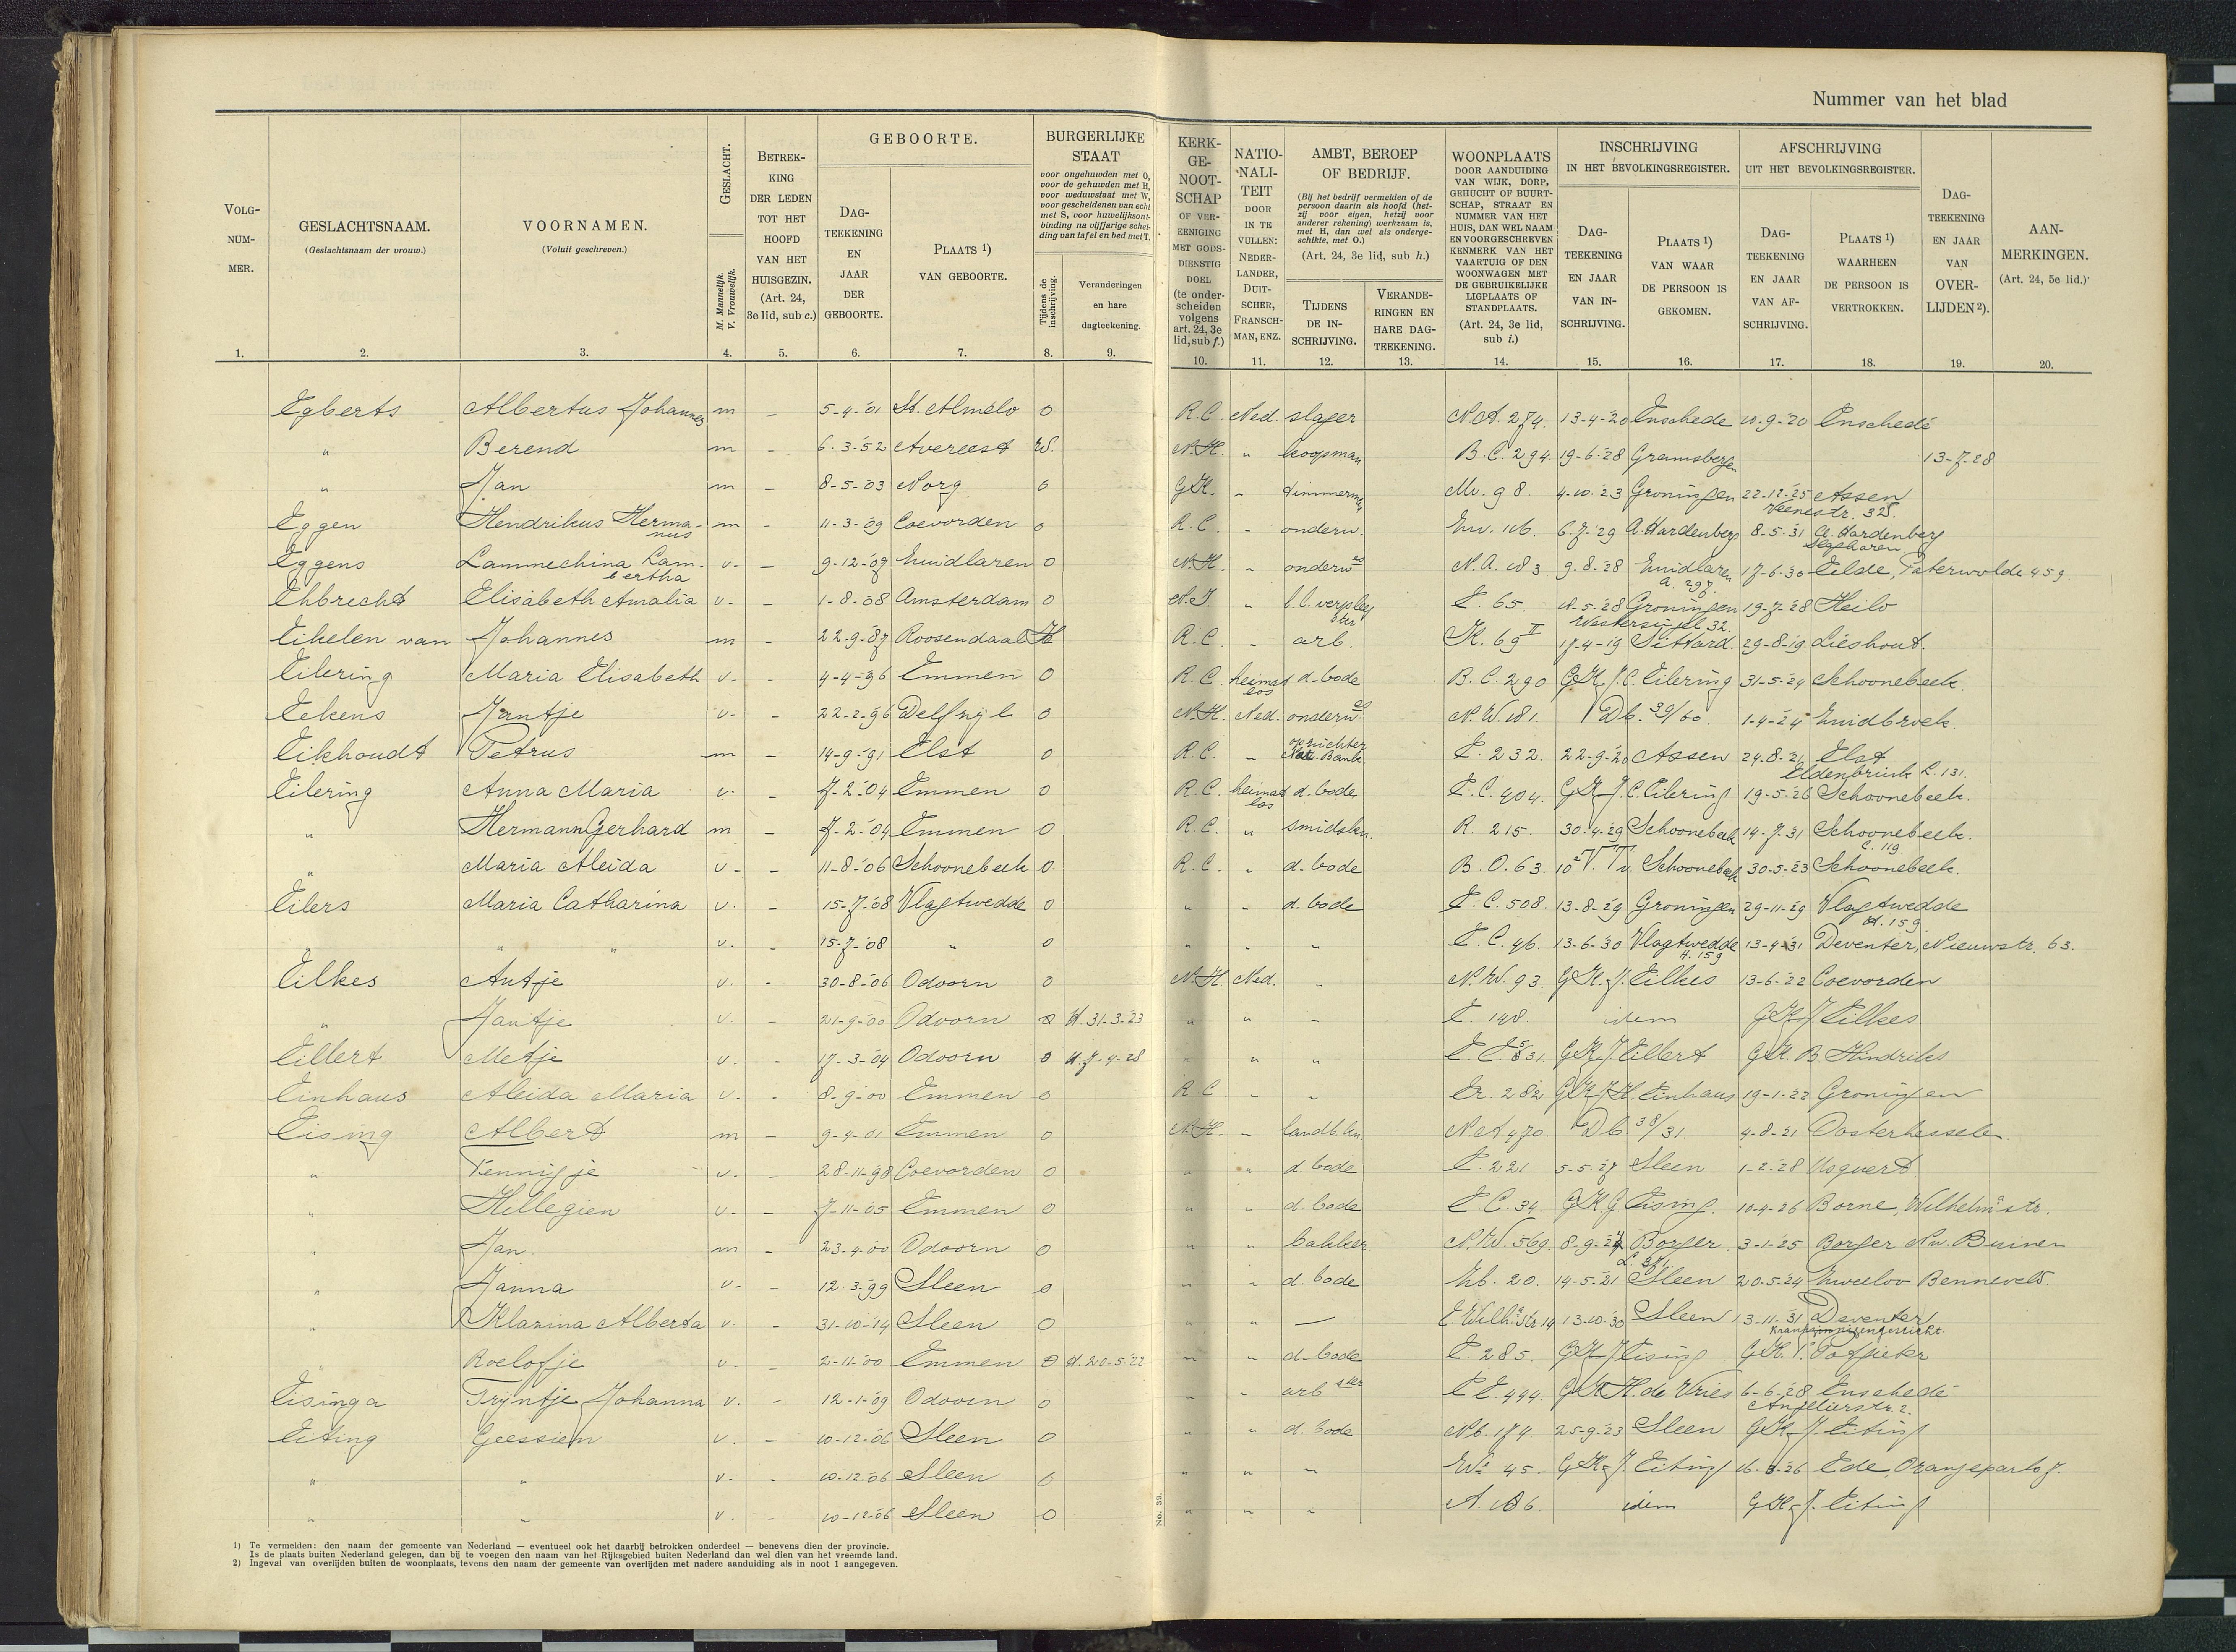 Nummer van het blad
VOLG-NUM-MER. GESLACHTSNAAM. (Geslachtsnaam der vrouw.) VOORNAMEN. (Voluit geschreven.) GESLACHT. M. Mannelijk. V. Vrouwelijk. BETREK-KING DER LEDEN TOT HET HOOFD VAN HET HUISGEZIN. (Art. 24, 3e lid, sub c.) GEBOORTE. DAG-TEEKENING EN JAAR DER GEBOORTE. PLAATS 1) VAN GEBOORTE. BURGERLIJKE STAAT voor ongehuwden met O, voor de gehuwden met H, voor weduwstaat met W, voor gescheidenen van echt met S, voor huwelijksont-binding na vijfjarige schei-ding van tafel en bed met T. Tijdens de inschrijving. Veranderingen en hare dagteekening.
KERK-GE-NOOT-SCHAP OF VER-EENIGING MET GODS-DIENSTIG DOEL (te onder-scheiden volgens art. 24, 3e lid, sub f.) NATIO-NALI-TEIT DOOR IN TE VULLEN: NEDER-LANDER, DUIT-SCHER, FRANSCH-MAN, ENZ. AMBT, BEROEP OF BEDRIJF. (Bij het bedrijf vermelden of de persoon daarin als hoofd (het-zij voor eigen, hetzij voor anderer rekening) werkzaam is, met H, dan wel als onderge-schikte, met O.) (Art. 24, 3e lid, sub h.) TIJDENS DE IN-SCHRIJVING. VERANDE-RINGEN EN HARE DAG-TEEKENING. WOONPLAATS DOOR AANDUIDING VAN WIJK, DORP, GEHUCHT OF BUURT-SCHAP, STRAAT EN NUMMER VAN HET HUIS, DAN WEL NAAM EN VOORGESCHREVEN KENMERK VAN HET VAARTUIG OF DEN WOONWAGEN MET DE GEBRUIKELIJKE LIGPLAATS OF STANDPLAATS. (Art. 24, 3e lid, sub i.) INSCHRIJVING IN HET BEVOLKINGSREGISTER. DAG-TEEKENING EN JAAR VAN IN-SCHRIJVING. PLAATS 1) VAN WAAR DE PERSOON IS GEKOMEN. AFSCHRIJVING UIT HET BEVOLKINGSREGISTER. DAG-TEEKENING EN JAAR VAN AF-SCHRIJVING. PLAATS 1) WAARHEEN DE PERSOON IS VERTROKKEN. DAG-TEEKENING EN JAAR VAN OVER-LIJDEN 2). AAN-MERKINGEN. (Art. 24, 5e lid.)
1. 2. 3. 4. 5. 6. 7. 8. 9. 10. 11. 12. 13. 14. 15. 16. 17. 18. 19. 20.
Egberts Albertus Johannes m - 5-4-'01 St. Almelo O R.C. Ned. slager N.A. 274. 13-4-20 Enschede 10-9-20 Enschedé
" Berend m - 6-3-'52 Avereest W. N.H. " koopman B.C. 294. 19-6-'28 Gramsbergen 13-7-28
" Jan m - 8-5-'03 Norg O G.K. " timmerman 98. 4-10-'23 Groningen 22-12-'25 Assen Veenestr. 32
Eggen Hendrikus Hermanus m - 11-3-'09 Coevorden O R.C. " onderw. 6-7-'29 A. Hardenberg 8-5-'31 A. Hardenberg
Eggens Lammechina Lambertha v. - 9-12-'07 Zuidlaren O N.H. " onderw es N.A. 183 9-8-'28 Zuidlaren A. 297. 17-6-30 Eelde, Paterwolde 459
Ehbrecht Elisabeth Amalia v. - 1-8-'08 Amsterdam O N.I. " E. 65. 11-5-'28 Groningen Westersingel 32. 19-7-'28 Heilo
Eikelen van Johannes m - 22-9-'87 Roosendaal H R.C. " arb. K. 69 II 17-4-19 Sittard. 29-8-19 Lieshout.
Eilering Maria Elisabeth v. - 4-4-'96 Emmen O R.C. heimatlos d-bode B.C. 290 G.K. J.C. Eilering 31-5-'24 Schoonebeek.
Eekens Jantje v. - 22-2-'96 Delfzijl O N.H. Ned. onderw es N.W. 181. Db. 39/60. 1-4-'24 Zuidbroek.
Eikhoudt Petrus m - 14-9-'91 Elst O R.C. " opzichter Nat. Bank E. 232. 22-9-'20 Assen 24-8-'21 Elst Eldenbrink L. 131.
Eilering Anna Maria v. - 7-2-'04 Emmen O R.C. heimatlos d. bode E.C. 404. G.K. J.C. Eilering 19-5-'26 Schoonebeek.
" Hermann Gerhard m - 7-2-'04 Emmen O R.C. " smidskn. R. 215. 30-4-'29 Schoonebeek 14-7-'31 Schoonebeek. C. 119.
" Maria Aleida v. - 11-8-'06 Schoonebeek O R.C. " d. bode B.O. 63. Schoonebeek 30-5-'23 Schoonebeek.
Eilers Maria Catharina v. - 15-7-'08 Vlagtwedde O " " d. bode E.C. 508. 13-8-'29 Groningen 29-11-'29 Vlagtwedde H. 159.
" " " v. - 15-7-'08 " O " " " E.C. 46. 13-6-'30 Vlagtwedde H. 159 13-4-31 Deventer, Nieuwstr. 63.
Eilkes Antje v. - 30-8-'06 Odoorn O N.H. Ned. " N.W. 93. G.K. J. Eilkes 13-6-'22 Coevorden
" Jantje v. - 21-9-'00 Odoorn O H. 31-3-'23 " " " E. 148. idem G.K. J Eilkes
Eillert Metje v. - 17-3-'04 Odoorn O H. 7-4-28 " " " G.K. J. Eillert G.K. B Hindriks
Einhaus Aleida Maria v. - 8-9-'00 Emmen O R.C " " Er. 282 G.K. J.H. Einhaus 19-1-'22 Groningen
Eising Albert m - 9-4-'01 Emmen O N.H. " landb.kn. N.A. 470 Db 38/31 4-8-'21 Oosterhesselen.
" Fennigje v. - 28-11-98 Coevorden O " " d bode E. 221 5-5-'27 Sleen 1-2-'28 Usquert
" Hillegien v. - 7-11-'05 Emmen O " " d. bode E.C. 34. G.K. G Eising. 10-4-'26 Borne, Wilhelm a str.
" Jan m - 23-4-'00 Odoorn O " " bakker N.W. 569. 8-9-'24 Borger 3-1-'25 Borger Nw. Buinen
" Janna v. - 12-3-'99 Sleen O " " d. bode Zb. 20. 14-5-'21 Sleen 20-5-'24 Zweeloo Benneveld.
" Klazina Alberta v. - 31-10-'14 Sleen O " " — E. Wilh a str 14 13-10-'30 Sleen 13-11-'31 Deventer Krankzinnigengesticht.
" Roelofje v. - 2-11-'00 Emmen O H. 20-5-'22 " " d-bode E. 285. G.K. J Eising
Eisinga Trijntje Johanna v. - 12-1-'09 Odoorn O " " arb ster E.E. 494. G.K. H. de Vries 6-6-'28 Enschedé Anjelierstr. 2.
Eiting Geessien v. - 10-12-'06 Sleen O " " d. bode Nb. 174. 25-9-'23 Sleen G.K. J. Eiting
" " v. - 10-12-'06 Sleen O " " " 45. G.K. J. Eiting 16-3-'26 Ede, Oranjepark 7.
" " v. - 10-12-06 Sleen O " " " A. 186. idem G.K. J. Eiting
No. 39.
1) Te vermelden: den naam der gemeente van Nederland — eventueel ook het daarbij betrokken onderdeel — benevens dien der provincie.
Is de plaats buiten Nederland gelegen, dan bij te voegen den naam van het Rijksgebied buiten Nederland dan wel dien van het vreemde land.
2) Ingeval van overlijden buiten de woonplaats, tevens den naam der gemeente van overlijden met nadere aanduiding als in noot 1 aangegeven.